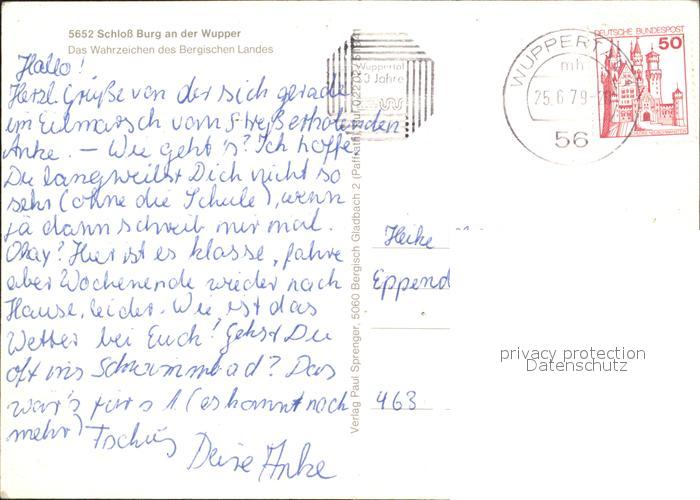 5652 Schloß Burg an der Wupper
Das Wahrzeichen des Bergischen Landes
Hallo!
Herzl. Grüße von der sich gerade
im Eilmarsch vom Streß erholenden
Anke. – Wie geht's? Ich hoffe,
Du langweilst Dich nicht so
sehr (ohne die Schule), wenn
ja dann schreib mir mal.
Okay? Hier ist es klasse, fahre
aber Wochenende wieder nach
Hause, leider. Wie ist das
Wetter bei Euch? Gehst Du
oft ins Schwimmbad? Das
wär's fürs 1. (es kommt noch
mehr) Tschüs
Deine Anke
Verlag Paul Sprenger, 5060 Bergisch Gladbach 2 (Paffrath)
Wuppertal
50 Jahre
WUPPERTAL
mh
25.6.79
56
DEUTSCHE BUNDESPOST
50
Heike
Eppend
463
privacy protection
Datenschutz